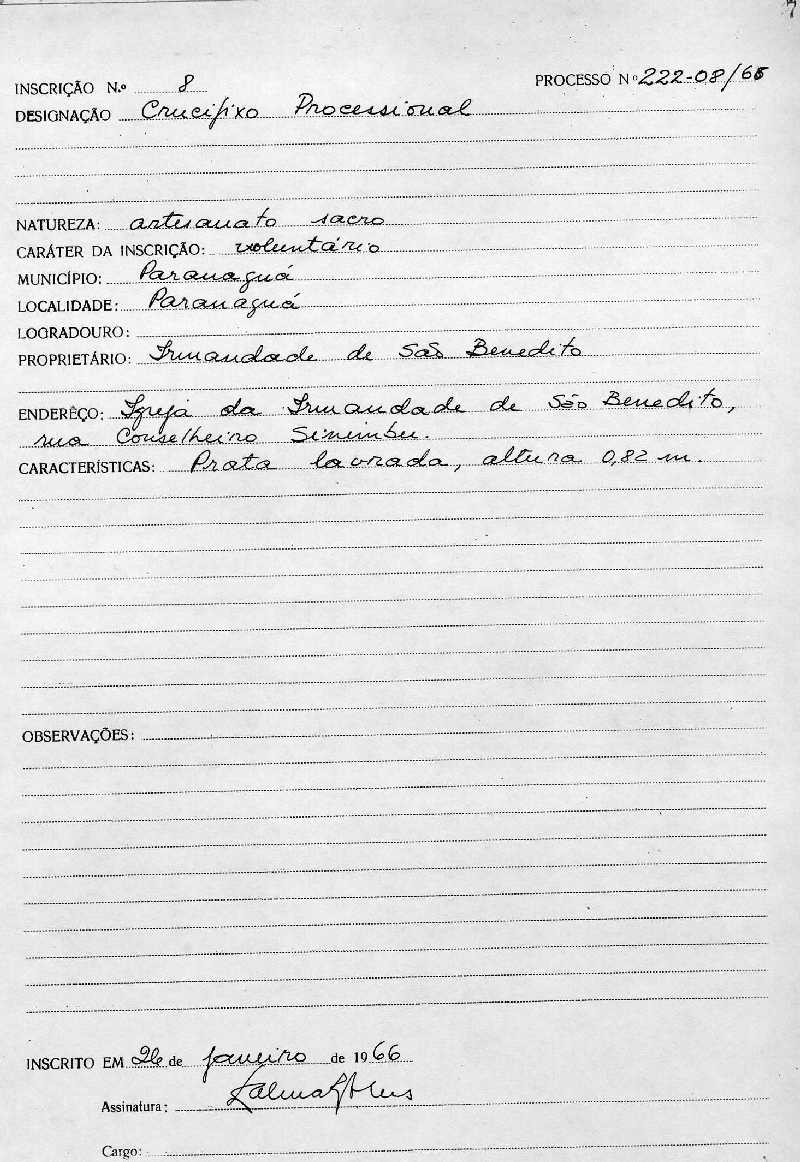 INSCRIÇÃO N.º 8 PROCESSO Nº 222-08/66
DESIGNAÇÃO Crucifixo Processional
NATUREZA: artesanato sacro
CARÁTER DA INSCRIÇÃO: voluntário
MUNICÍPIO: Paranaguá
LOCALIDADE: Paranaguá
LOGRADOURO:
PROPRIETÁRIO: Irmandade de São Benedito
ENDERÊÇO: Igreja da Irmandade de São Benedito,
rua Conselheiro Sinimbu.
CARACTERÍSTICAS: Prata lavrada, altura 0,82 m.
OBSERVAÇÕES:
INSCRITO EM 26 de janeiro de 1966
Assinatura:
Cargo: